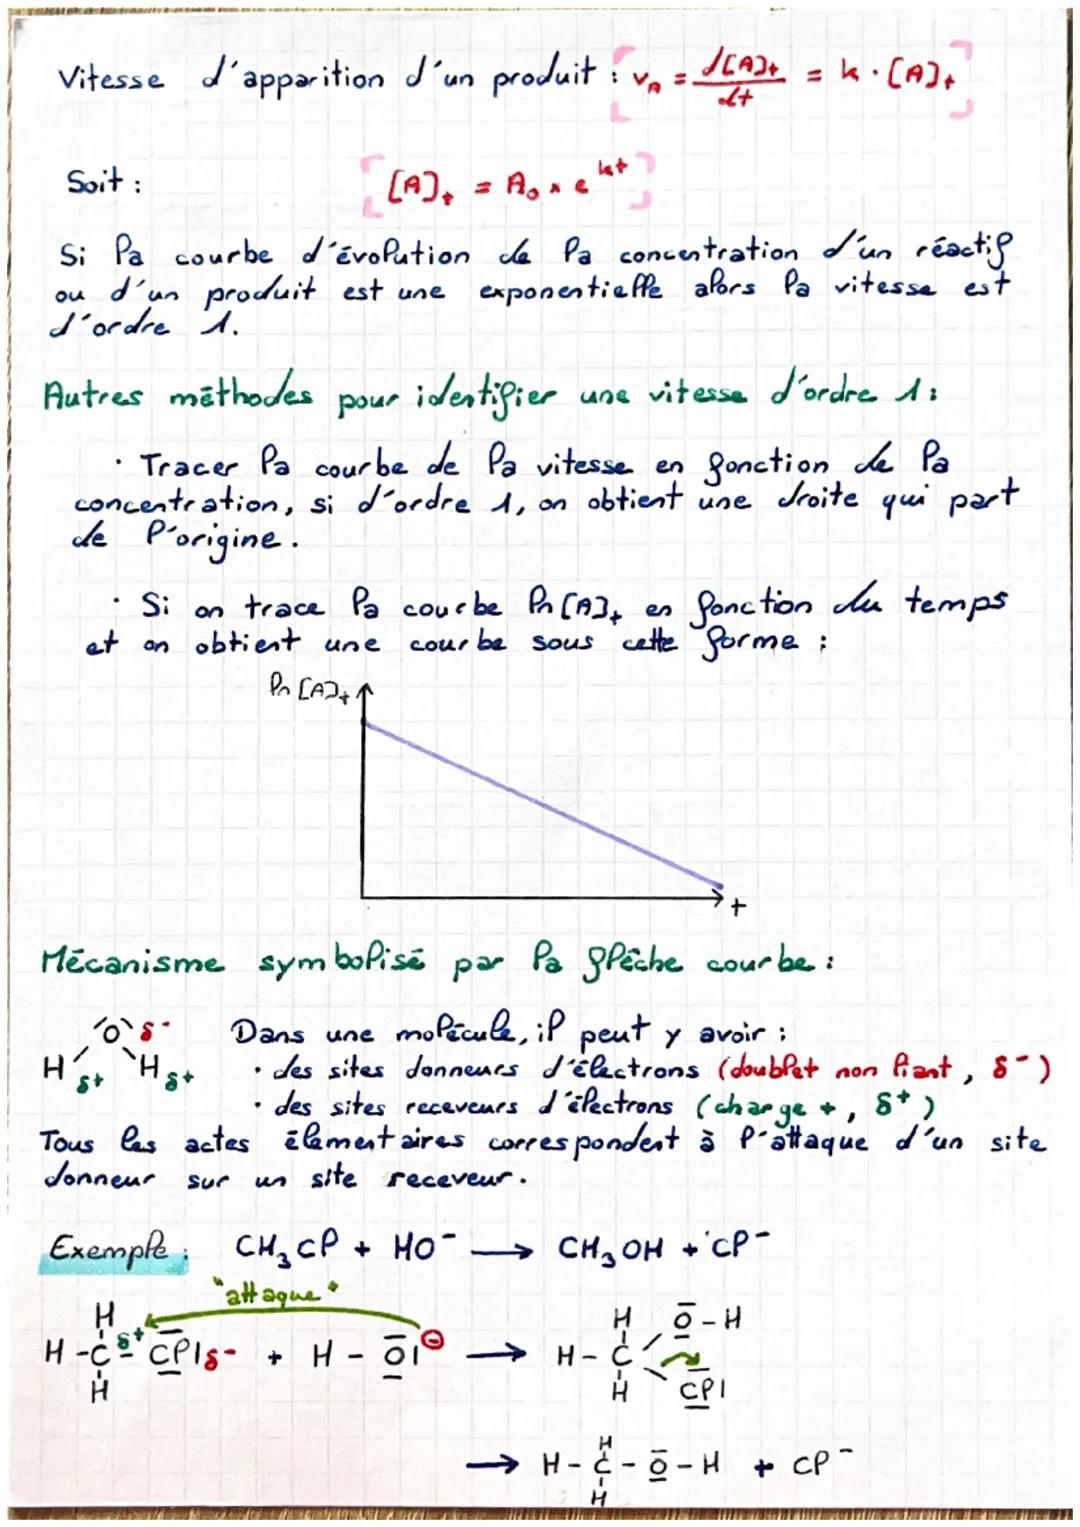 Vitesse d'apparition d'un produit : v_A = d[A]t / dt = k · [A]t
Soit : [A]t = A₀ × e^kt
Si la courbe d'évolution de la concentration d'un réactif
ou d'un produit est une exponentielle alors la vitesse est
d'ordre 1.
Autres méthodes pour identifier une vitesse d'ordre 1 :
· Tracer la courbe de la vitesse en fonction de la
concentration, si d'ordre 1, on obtient une droite qui part
de l'origine.
· Si on trace la courbe ln [A]t en fonction du temps
et on obtient une courbe sous cette forme :
ln [A]t
t
Mécanisme symbolisé par la flèche courbe :
O δ-
H δ+ H δ+
Dans une molécule, il peut y avoir :
· des sites donneurs d'électrons (doublet non liant, δ-)
· des sites receveurs d'électrons (charge +, δ+)
Tous les actes élémentaires correspondent à l'attaque d'un site
donneur sur un site receveur.
Exemple : CH₃Cl + HO⁻ → CH₃OH + Cl⁻
"attaque"
H H O - H
H - C δ+ - Cl δ- + H - O ⊖ → H - C
H H Cl
H
→ H - C - O - H + Cl⁻
H